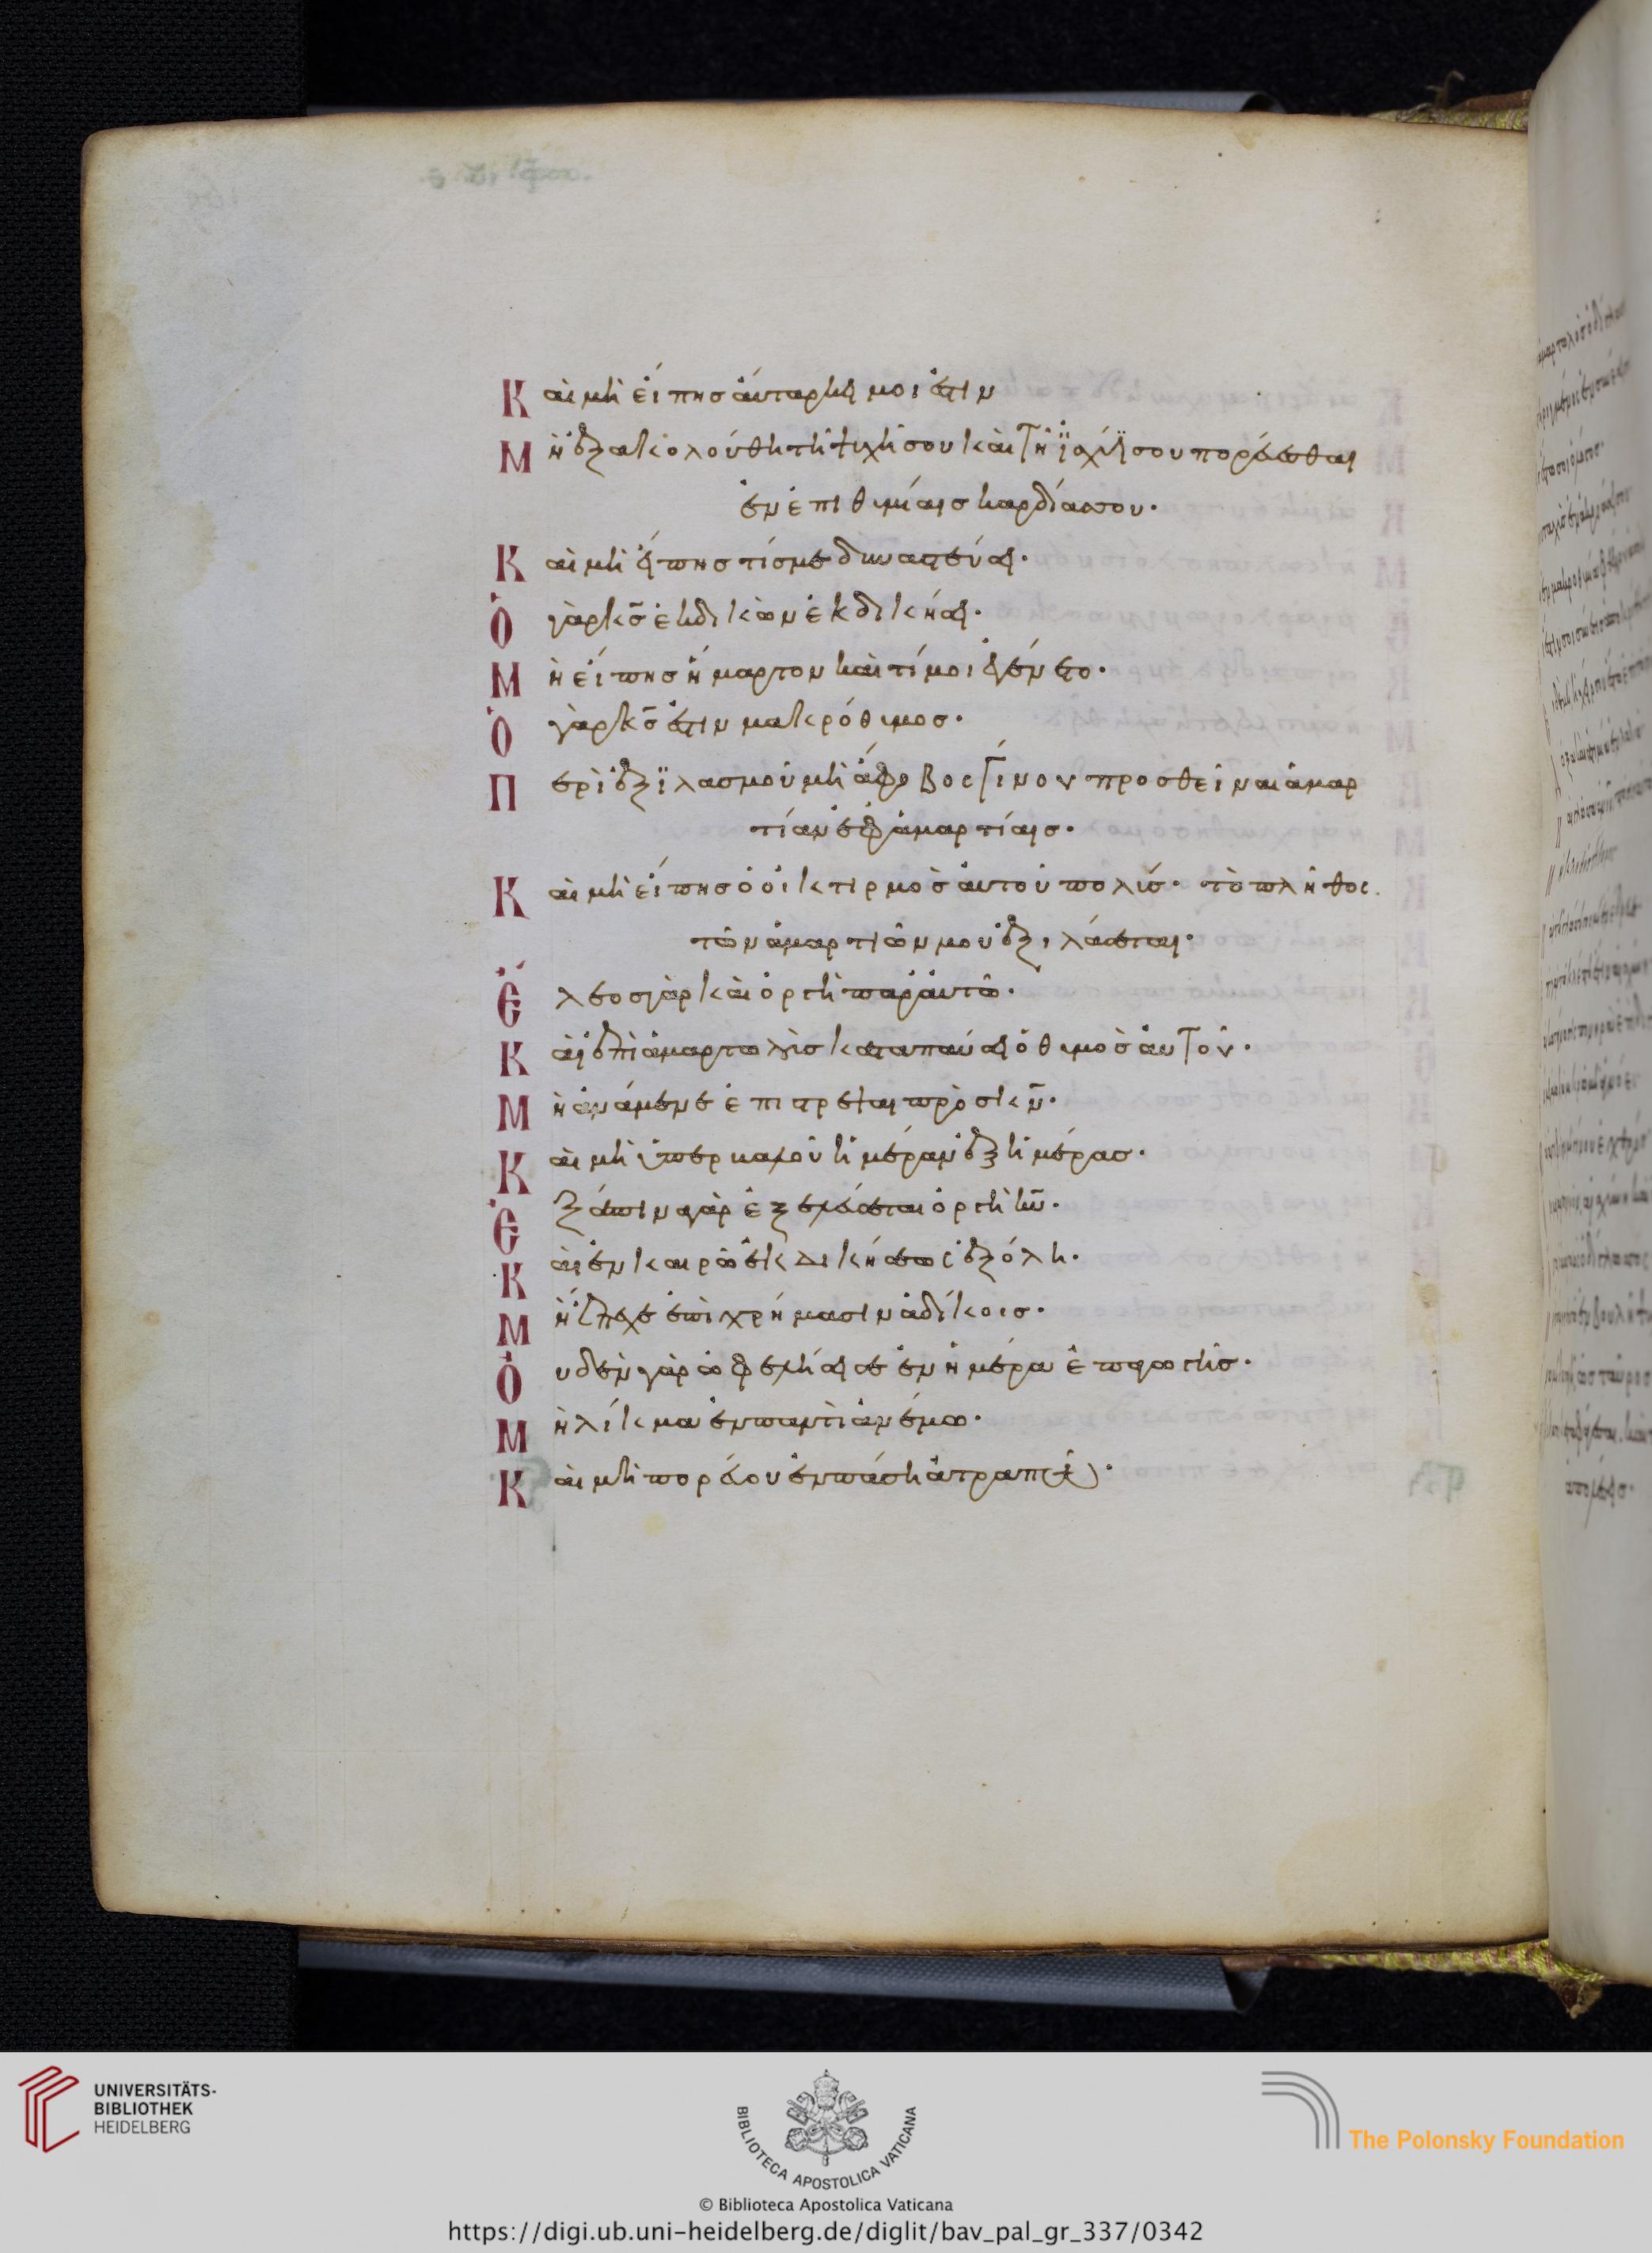 Καὶ μὴ εἴπης αὐτάρκη μοι ἐστιν
Μὴ ἐξακολούθη τῆ ψυχῆ σου καὶ τῆ ϊσχύϊ σου πορεύεσθαι
ἐν ἐπιθυμίαις καρδίας σου·
Καὶ μὴ εἴπης τίς με δυναστεύσει·
Ὁ γὰρ κ̅ς̅ ἐκδικῶν ἐκδικήσει·
Μὴ εἴπης ἥμαρτον καὶ τί μοι ἐγένετο·
Ὁ γὰρ κ̅ς̅ ἐστιν μακρόθυμος·
Περὶ ἐξϊλασμοῦ μὴ ἄφοβος γίνου προσθεῖναι ἁμαρ
τίαν ἐφ ἁμαρτίαις·
Καὶ μὴ εἴπης ὁ οἰκτιρμὸς αὐτοῦ πολύς· τὸ πλῆθος
τῶν ἁμαρτιῶν μου ἐξιλάσεται·
Ἔλεος γὰρ καὶ ὀργὴ παρ αὐτῶ·
Καὶ ἐπὶ ἁμαρτωλοὺς καταπαύσει ὁ θυμὸς αὐτοῦ·
Μὴ ἀνάμενε ἐπιστρέψαι πρὸς κ̅ν̅·
Καὶ μὴ ὑπερβαλοῦ ἡμέραν ἐξ ἡμέρας·
Ἐξάπινα γὰρ ἐξελεύσεται ὀργὴ κ̅υ̅·
Καὶ ἐν καιρῶ ἐκδικήσεως ἐξόλη·
Μὴ ἔπεχε ἐπὶ χρήμασιν ἀδίκοις·
Οὐδὲν γὰρ ὠφελήσει σε ἐν ἡμέρα ἐπαγωγῆς·
Μὴ λίκμα ἐν παντὶ ἀνέμω·
Καὶ μὴ πορεύου ἐν πάση ἀτραπῶ·
UNIVERSITÄTS-
BIBLIOTHEK
HEIDELBERG
BIBLIOTECA APOSTOLICA VATICANA
The Polonsky Foundation
© Biblioteca Apostolica Vaticana
https://digi.ub.uni-heidelberg.de/diglit/bav_pal_gr_337/0342